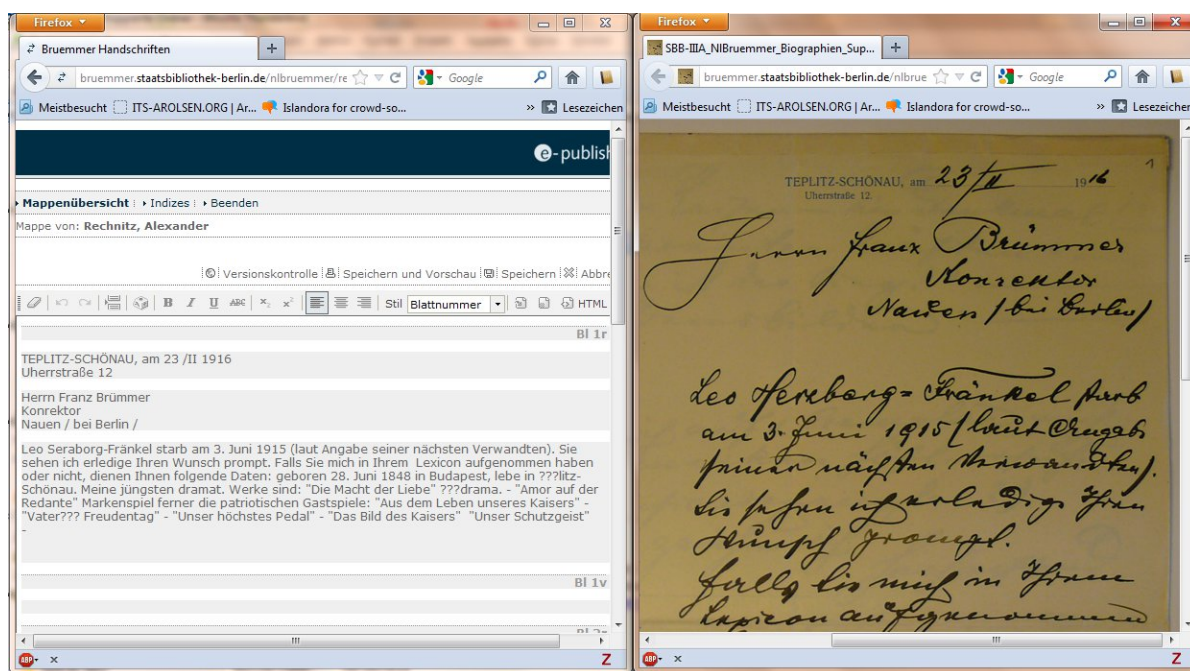 Firefox
Bruemmer Handschriften
bruemmer.staatsbibliothek-berlin.de/nlbruemmer/re
Google
Meistbesucht ITS-AROLSEN.ORG | Ar... Islandora for crowd-so... » Lesezeichen
e-publish
Mappenübersicht Indizes Beenden
Mappe von: Rechnitz, Alexander
Versionskontrolle Speichern und Vorschau Speichern Abbre
B I U ABC x₂ x² Stil Blattnummer HTML
Bl 1r
TEPLITZ-SCHÖNAU, am 23 /II 1916
Uherrstraße 12
Herrn Franz Brümmer
Konrektor
Nauen / bei Berlin /
Leo Seraborg-Fränkel starb am 3. Juni 1915 (laut Angabe seiner nächsten Verwandten). Sie
sehen ich erledige Ihren Wunsch prompt. Falls Sie mich in Ihrem Lexicon aufgenommen haben
oder nicht, dienen Ihnen folgende Daten: geboren 28. Juni 1848 in Budapest, lebe in ???litz-
Schönau. Meine jüngsten dramat. Werke sind: "Die Macht der Liebe" ???drama. - "Amor auf der
Redante" Markenspiel ferner die patriotischen Gastspiele: "Aus dem Leben unseres Kaisers" -
"Vater??? Freudentag" - "Unser höchstes Pedal" - "Das Bild des Kaisers" "Unser Schutzgeist"
-
Bl 1v
ABP
Z
Firefox
SBB-IIIA_NlBruemmer_Biographien_Sup...
bruemmer.staatsbibliothek-berlin.de/nlbrue
Google
Meistbesucht ITS-AROLSEN.ORG | Ar... Islandora for crowd-so... » Lesezeichen
1
TEPLITZ-SCHÖNAU, am 23/II 1916
Uherrstraße 12.
Herrn Franz Brümmer
Konrektor
Nauen / bei Berlin /
Leo Herzberg=Fränkel starb
am 3. Juni 1915 / laut Angabe
seiner nächsten Verwandten /.
Sie sehen ich erledige Ihren
Wunsch prompt.
Falls Sie mich in Ihrem
Lexicon aufgenommen
ABP
Z